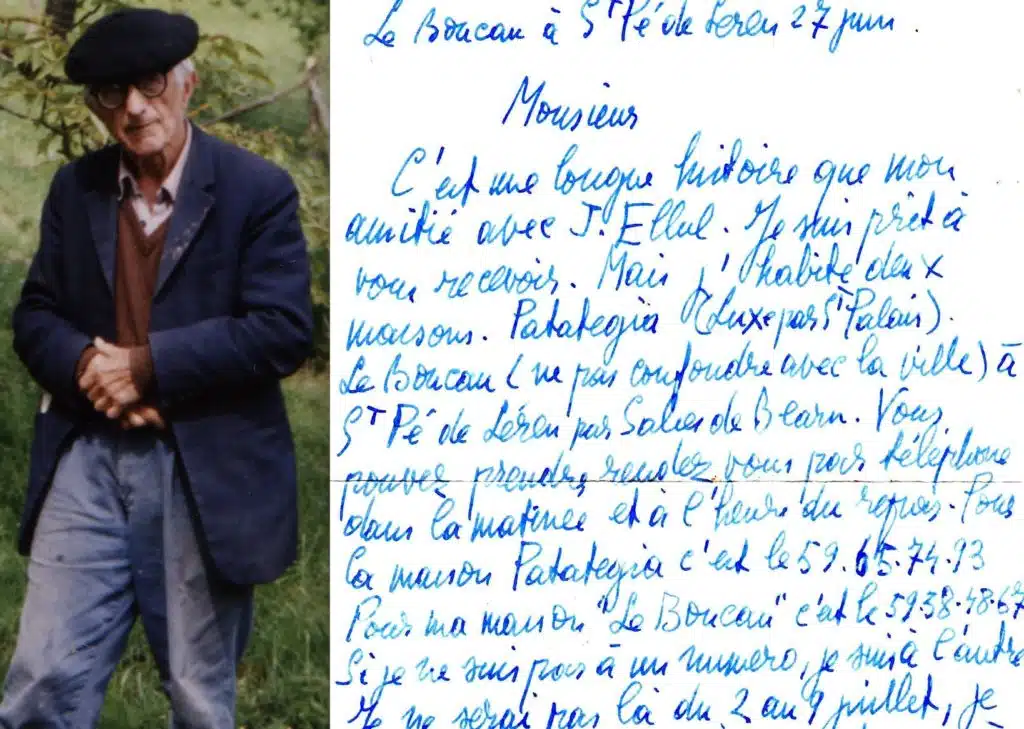 Le Boucau à St Pé de Leren 27 juin.
Monsieur
C'est une longue histoire que mon
amitié avec J. Ellul. Je suis prêt à
vous recevoir. Mais j'habite deux
maisons. Patategia (Luxe par St Palais).
Le Boucau (ne pas confondre avec la ville) à
St Pé de Léren par Salies de Bearn. Vous
pouvez prendre rendez vous par téléphone
dans la matinée et à l'heure du repas. Pour
la maison Patategia c'est le 59.65.74.93
Pour ma maison "Le Boucau" c'est le 59.38.48.67
Si je ne suis pas à un numero, je suis à l'autre
Je ne serai pas là du 2 au 9 juillet, je